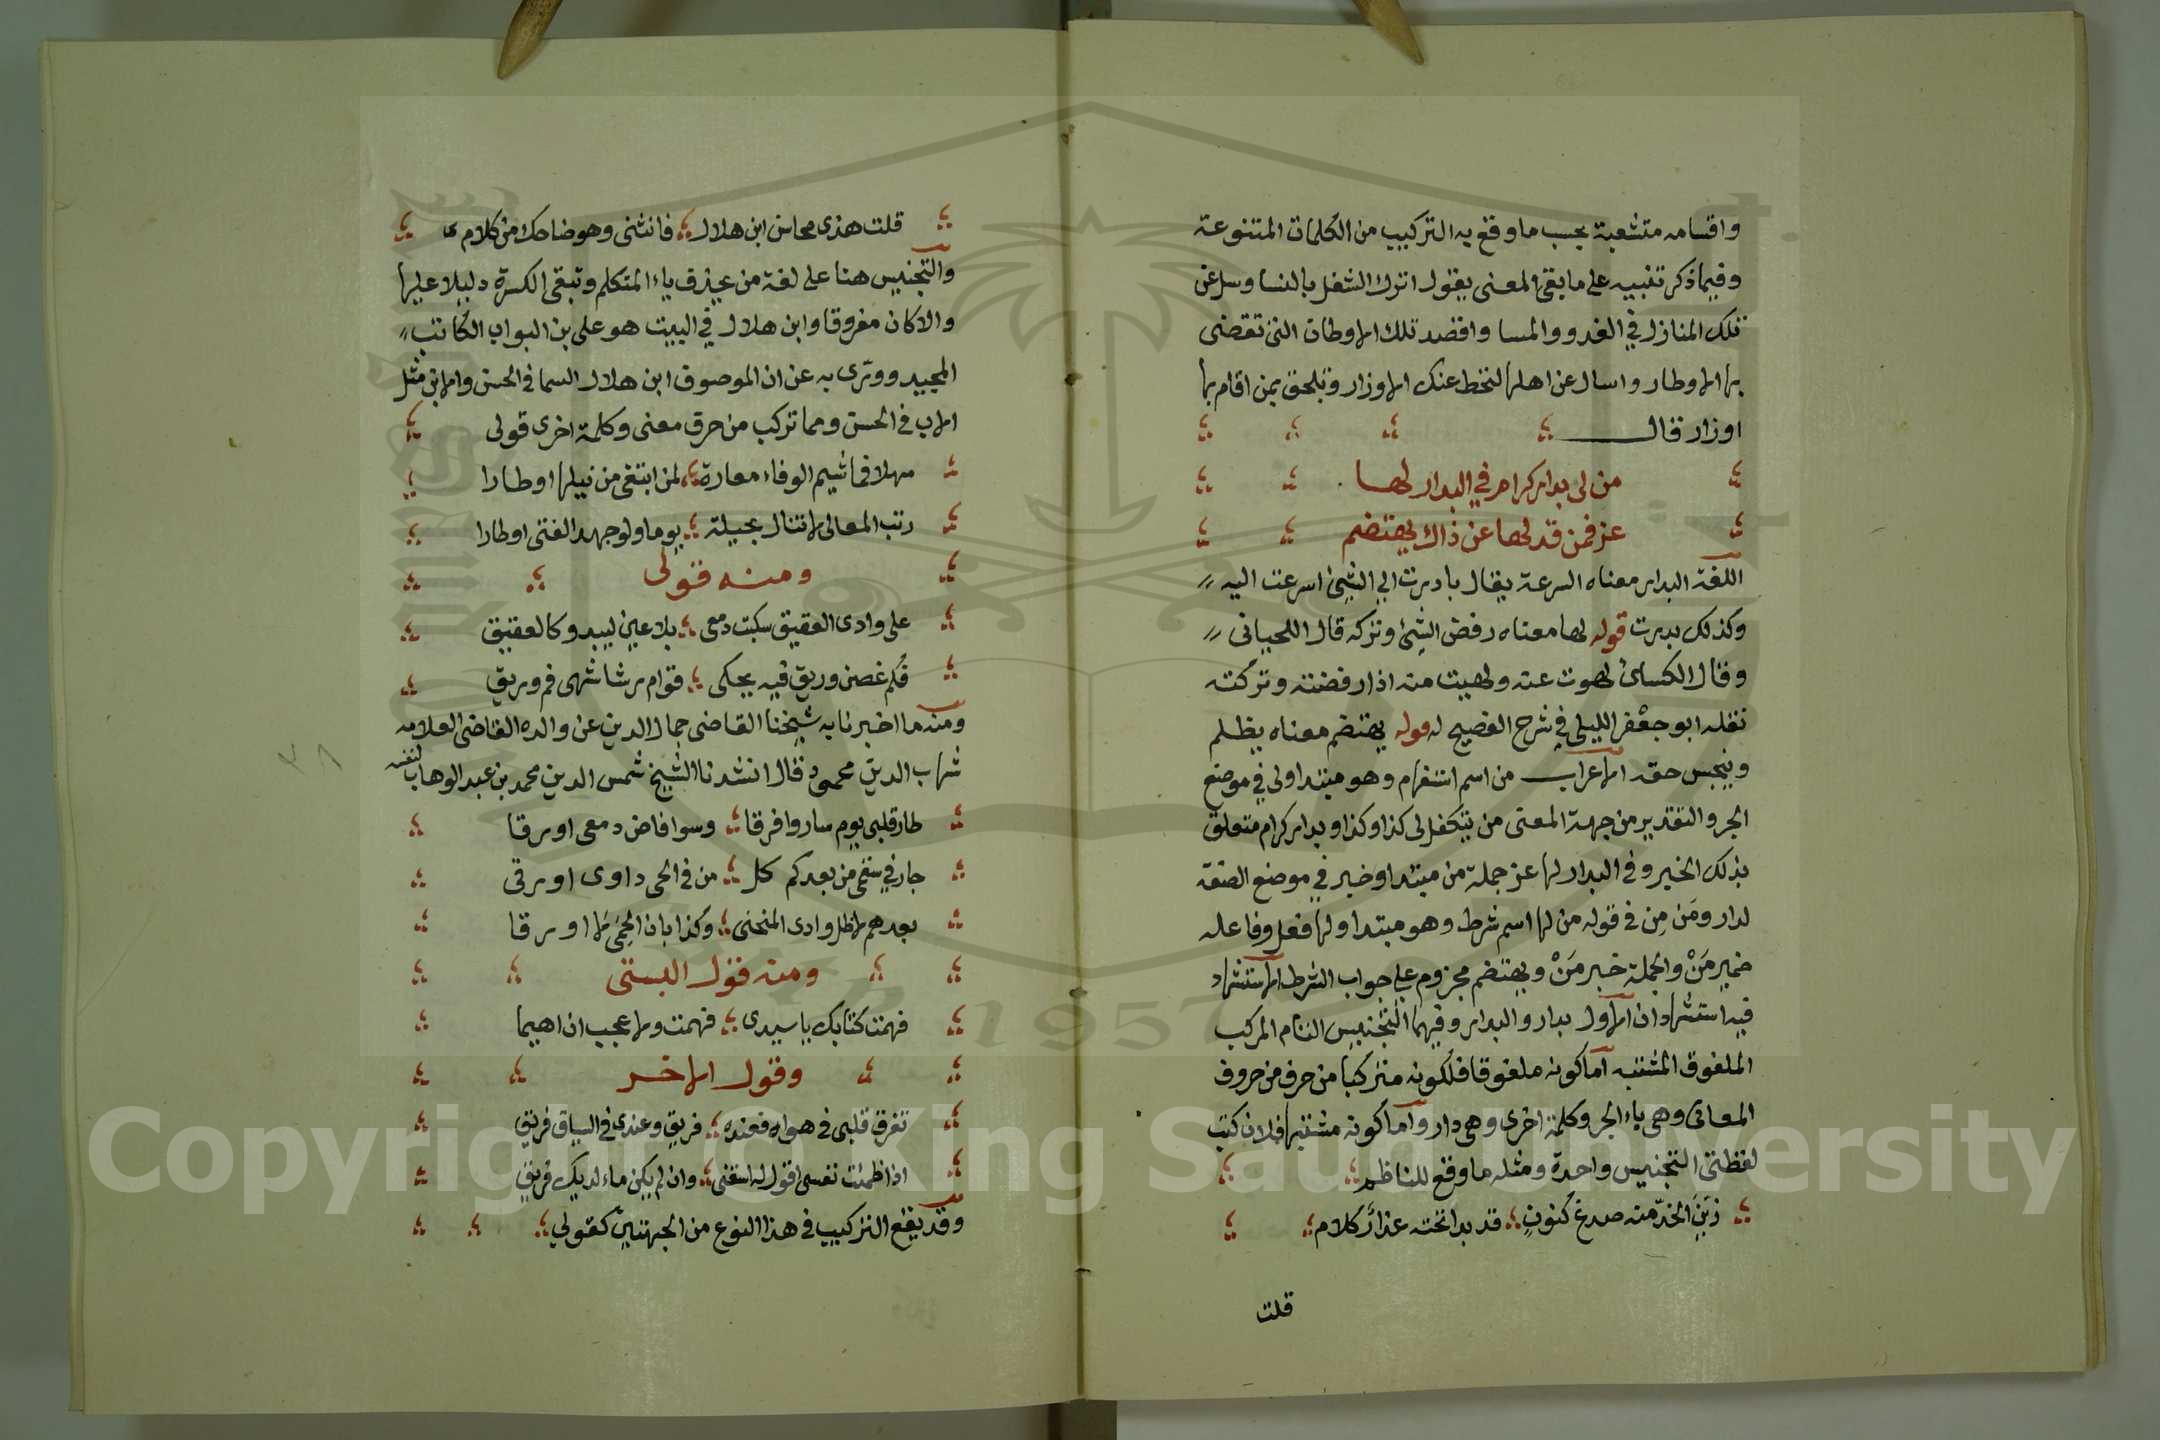 واقسامه متشعبة بحسب ما وقع به التركيب من الكلمات المتنوعة
وفيما ذكر تنبيه على ما بقى المعنى يقول اترك الشغل بالنسا وسل عن
تلك المنازل في الغدو والمسا واقصد تلك الاوطان التى تقضى
بها الاوطار واسال عن اهلها لتحط عنك الاوزار وتلحق بمن اقام بها
اوزار قال
من لى بدار كرام في البدار لها
عز فمن قد لها عن ذاك يهتضم
اللغة البدار معناه السرعة يقال بادرت الى الشيئ اسرعت اليه
وكذلك بدرت قوله لها معناه رفض الشيئ وتركه قال اللحيانى
وقال الكسائ لهوت عنه ولهيت منه اذا رفضته وتركته
نقله ابو جعفر اللبلى في شرح الفصيح له قوله يهتضم معناه يظلم
ويبخس حقه الاعراب من اسم استفهام وهو مبتدا ولى في موضع
الخبر والتقدير من جهة المعنى من يتكفل لى كذا وكذا وبدار كرام متعلق
بذلك الخبر وفى البدار لها عز جملة من مبتدا وخبر في موضع الصفة
لدار ومَن مِن فى قوله من لها اسم شرط وهو مبتدا ولها فعل وفاعله
ضمير مَنْ والجملة خبر مَنْ ويهتضم مجزوم على جواب الشرط الاستشهاد
فيه استشهاد ان الاول بدار والبدار وفيهما التجنيس التام المركب
الملفوق المشتبه اما كونه ملفوقا فلكونه متركبا من حرف من حروف
المعانى وهى باء الجر وكلمة اخرى وهى دار واما كونه مشتبها فلان كتب
لفظتى التجنيس واحدة ومثله ما وقع للناظم
زيّن الخدّ منه صدغ كنونٍ قد بدا تحته عذارٌ كلام
قلت
قلت هذى محاسن ابن هلال فانثنى وهو ضاحك من كلامى
والتجنيس هنا على لغة من يحذف ياء المتكلم وتبقى الكسرة دليلا عليها
والا كان مفروقا وابن هلال في البيت هو على بن البواب الكاتب
المجيد وورّى به عن ان الموصوف ابن هلال السما فى الحسن والابن مثل
الاب فى الحسن ومما تركب من حرق معنى وكلمة اخرى قولى
مهلا فما شيم الوفاء معارة لمن ابتغى من نيلها اوطارا
رتب المعالى لا تنال بحيلة يوما ولو جهد الفتى اوطارا
ومنه قولى
على وادى العقيق سكبت دمعى بلا عين ليبدو كالعقيق
فكم غصن وريق فيه يحكى قوام رشا شهى فم وريق
ومنه ما اخبرنا به شيخنا القاضى جمال الدين عن والده القاضى العلامه
شهاب الدين محمود قال انشدنا الشيخ شمس الدين محمد بن عبد الوهاب لنفسه
طار قلبى يوم ساروا فرقا وسوا فاض دمعى او رقا
جار في سقمى من بعدكم كل من فى الحى داوى او رقى
بعدهم لا ظل وادى المنحنى وكذا بان الحِمَى لا او رقا
ومنه قول البستى
فهمت كتابك يا سيدى فهمت ولا عجب ان اهيما
وقول الاخر
تفرق قلبى فى هواه فعنده فريق وعندى فى السياق فريق
اذا ظمئت نفسى اقول له اسقنى وان لم يكن ماء لديك فريق
وقد يقع التركيب فى هذا النوع من الجهتين كقولي